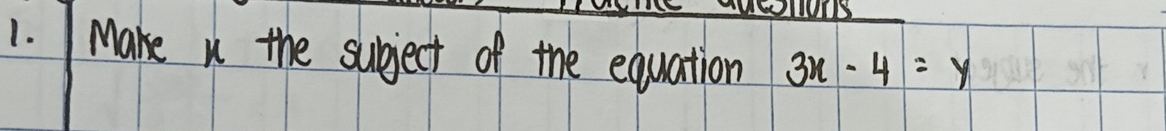 Practice Questions
1. Make x the subject of the equation 3x - 4 = y